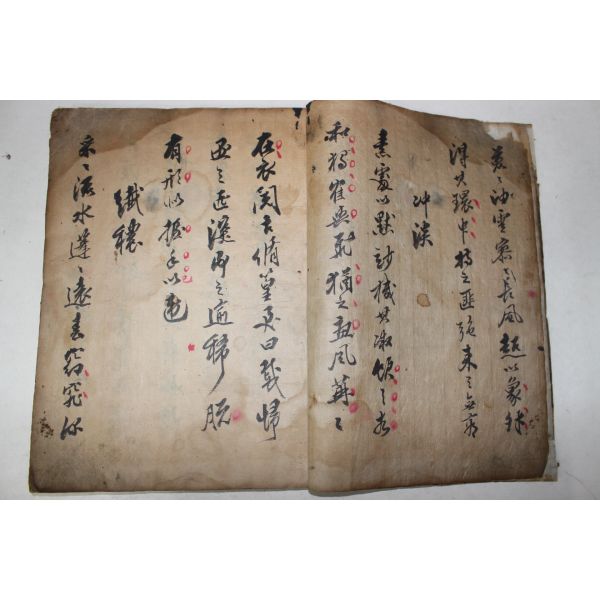 荒々油雲寥々長風超以象外
得其環中持之匪強来之無窮
冲淡
素處以默妙機其微飲之太
和獨崔與飛猶之惠風苒々
在衣閱音脩篁美曰載歸
遇之匪深即之愈稀脫
有形似握手以違
已
纖穠
采々流水蓬々遠春窈窕深